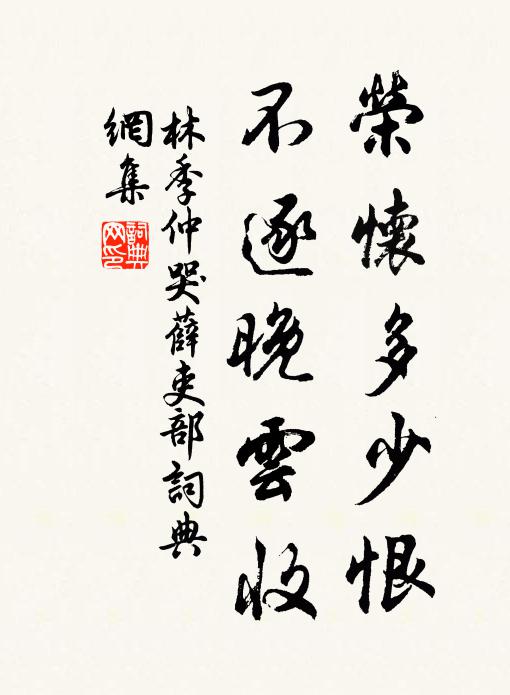 榮懷多少恨
不逐晚雲收
林季仲哭薛吏部詞典
網集
詞典
网印